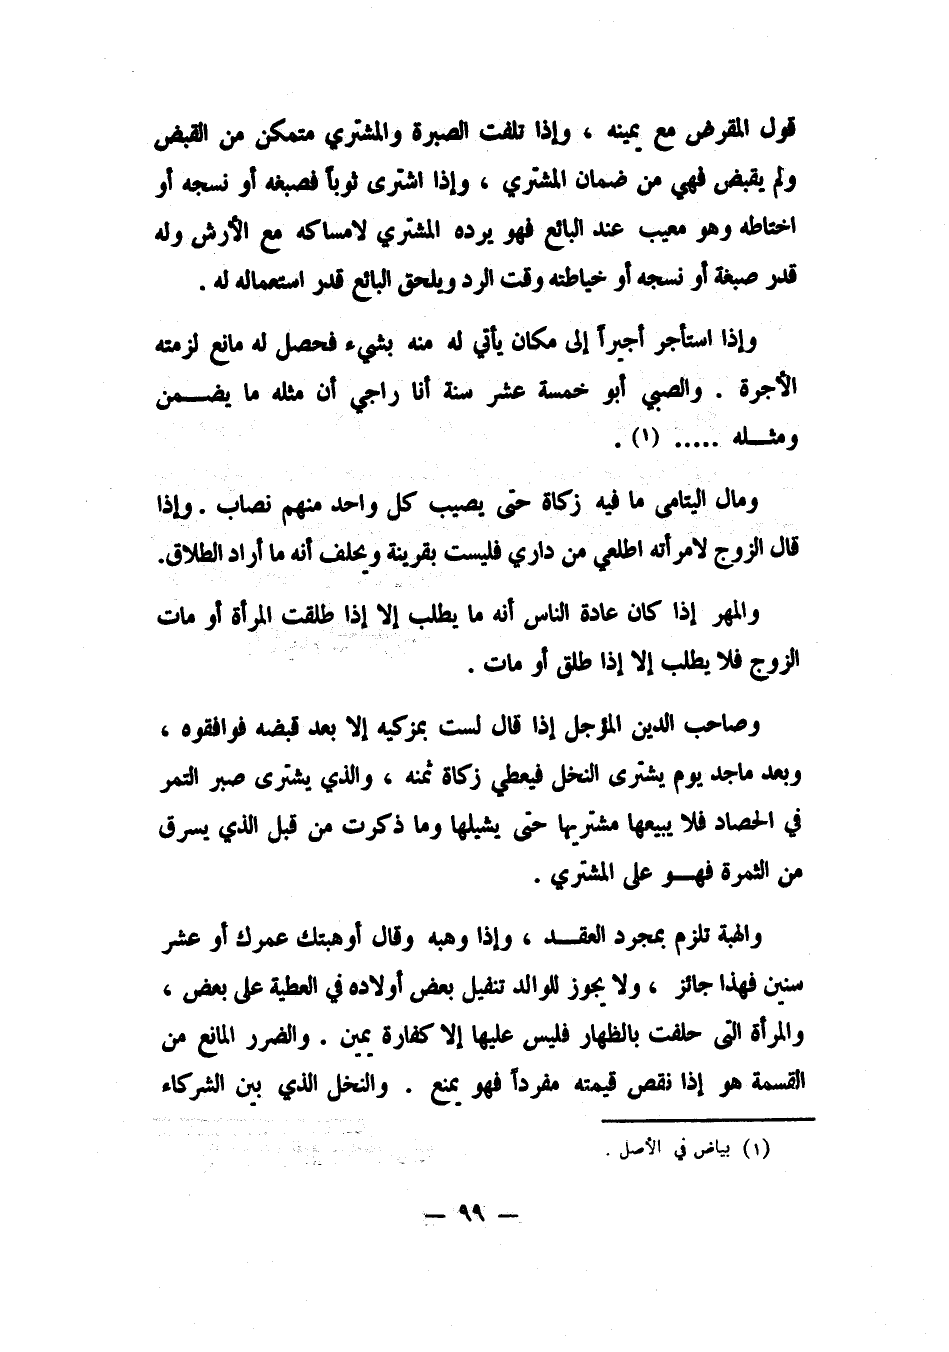 قول المقرض مع يمينه ، وإذا تلفت الصبرة والمشتري متمكن من القبض
ولم يقبض فهي من ضمان المشتري ، وإذا اشترى ثوباً فصبغه أو نسجه أو
اختاطه وهو معيب عند البائع فهو يرده المشتري لامساكه مع الأرش وله
قدر صبغة أو نسجه أو خياطته وقت الرد ويلحق البائع قدر استعماله له .
وإذا استأجر أجيراً إلى مكان يأتي له منه بشيء فحصل له مانع لزمته
الأجرة . والصبي أبو خمسة عشر سنة أنا راجي أن مثله ما يضمن
ومثله ..... (١) .
ومال اليتامى ما فيه زكاة حتى يصيب كل واحد منهم نصاب . وإذا
قال الزوج لامرأته اطلعي من داري فليست بقرينة ويحلف أنه ما أراد الطلاق.
والمهر إذا كان عادة الناس أنه ما يطلب إلا إذا طلقت المرأة أو مات
الزوج فلا يطلب إلا إذا طلق أو مات .
وصاحب الدين المؤجل إذا قال لست بمزكيه إلا بعد قبضه فوافقوه ،
وبعد ماجد يوم يشترى النخل فيعطي زكاة ثمنه ، والذي يشترى صبر التمر
في الحصاد فلا يبيعها مشتريها حتى يشيلها وما ذكرت من قبل الذي يسرق
من الثمرة فهو على المشتري .
والهبة تلزم بمجرد العقد ، وإذا وهبه وقال أوهبتك عمرك أو عشر
سنين فهذا جائز ، ولا يجوز للوالد تنفيل بعض أولاده في العطية على بعض ،
والمرأة التى حلفت بالظهار فليس عليها إلا كفارة يمين . والضرر المانع من
القسمة هو إذا نقص قيمته مفرداً فهو يمنع . والنخل الذي بين الشركاء
(١) بياض في الأصل .
— ٩٩ —